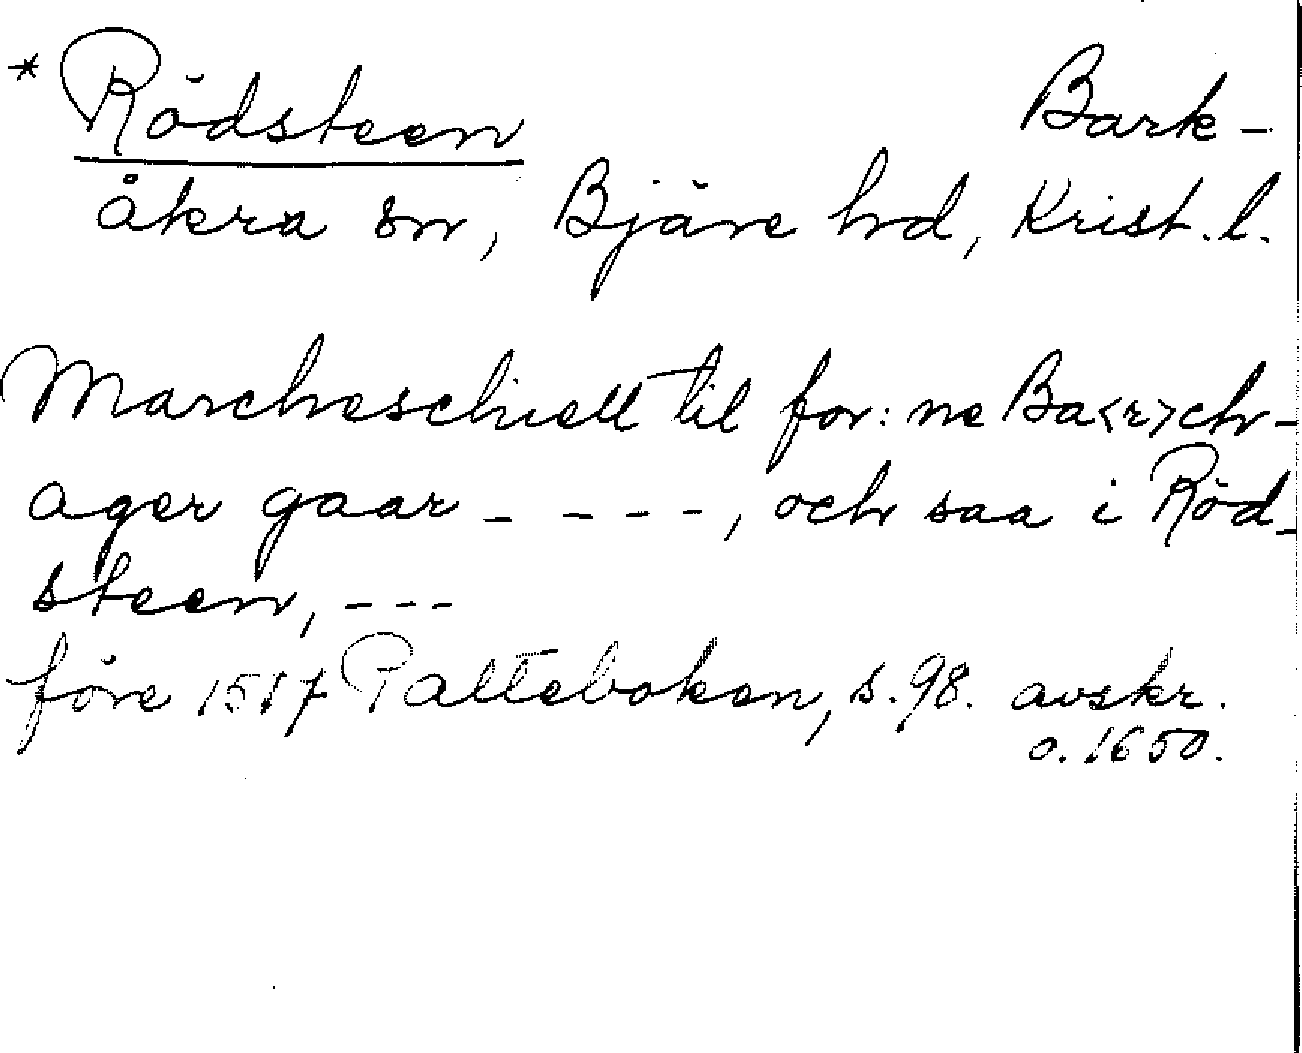 * Rödsteen Bark-
åkra sn, Bjäre hrd, Krist. l.
Marcheschiell til for: ne Ba<r>ch-
ager gaar - - - - -, och saa i Röd-
steen, - - -
före 1587 Palteboken, s. 98. avskr.
o. 1650.